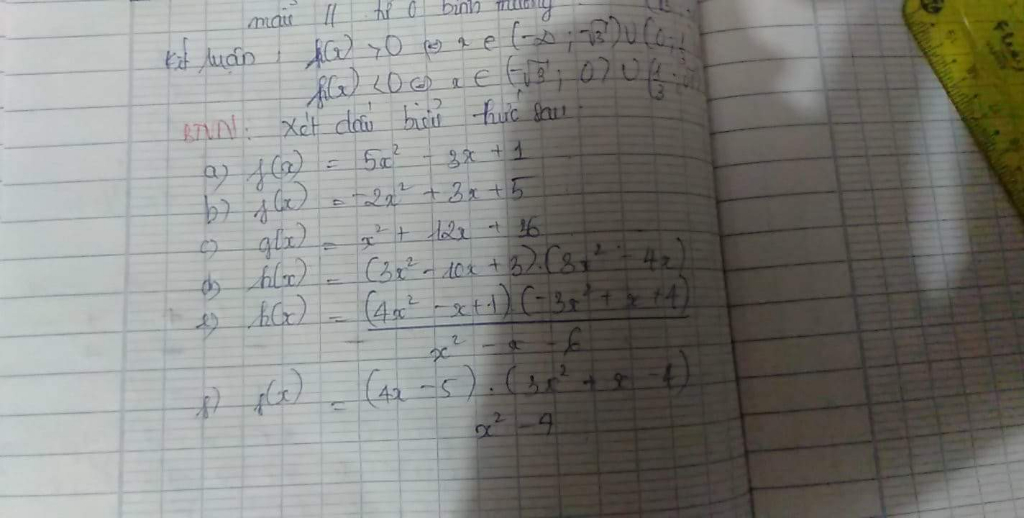 mẫu || là 0 bình thường
Kết luận: f(x) > 0 ⇔ x ∈ (-∞; -√3) ∪ (0;
f(x) < 0 ⇔ x ∈ (-√3; 0) ∪ (1/3;
BTVN: Xét dấu biểu thức sau:
a) f(x) = 5x² - 3x + 1
b) f(x) = -2x² + 3x + 5
c) g(x) = x² + 12x + 36
d) h(x) = (3x² - 10x + 3).(3x² - 4x)
h(x) = (4x² - x + 1)(-3x² + x + 4)
x² - x - 6
f) f(x) = (4x - 5).(3x² + x - 4)
x² - 9